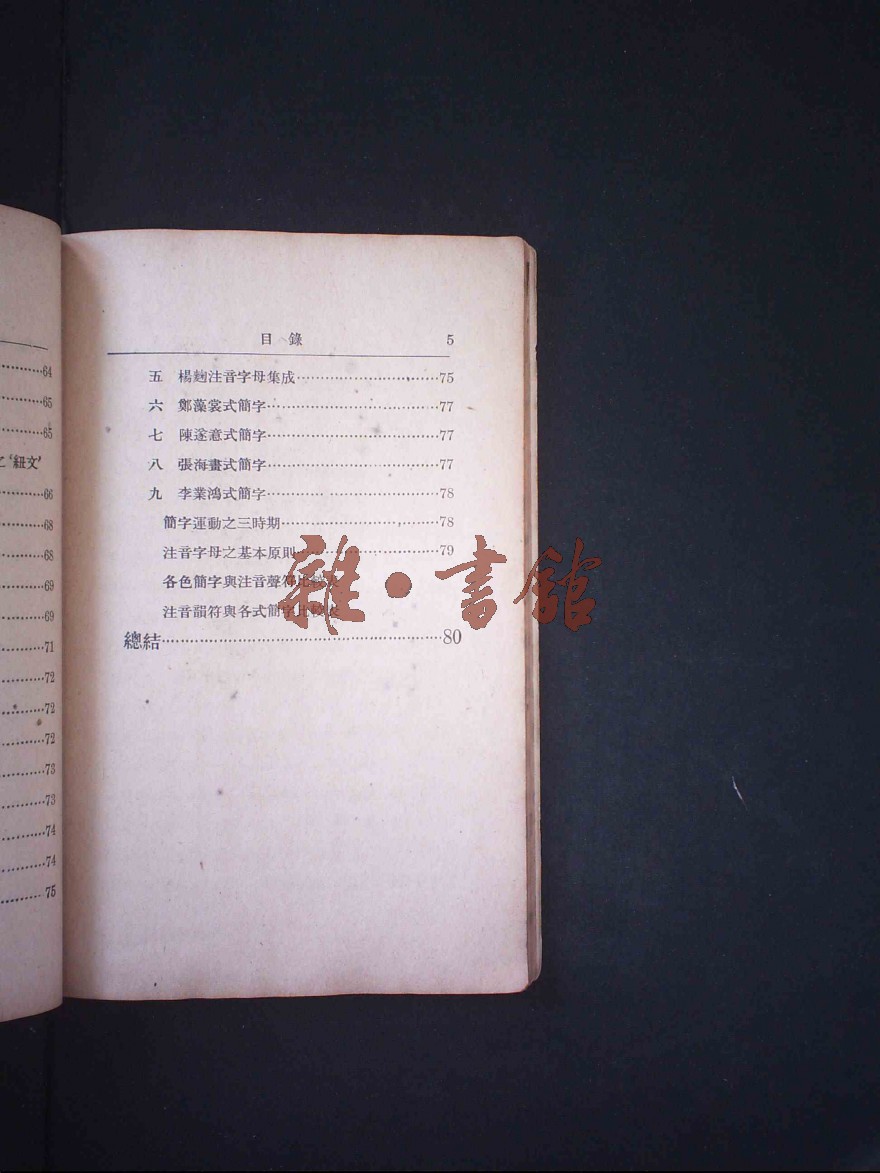 …………64
…………65
…………65
之‘紐文’
…………66
…………68
…………68
…………69
…………69
…………71
…………72
…………72
…………72
…………73
…………73
…………74
…………74
…………75
目錄 5
五 楊麹注音字母集成…………75
六 鄭藻裳式簡字…………77
七 陳遂意式簡字…………77
八 張海畫式簡字…………77
九 李業鴻式簡字…………78
簡字運動之三時期…………78
注音字母之基本原則…………79
各色簡字與注音聲符比較表
注音韻符與各式簡字比較表
總結…………80
雜·書館